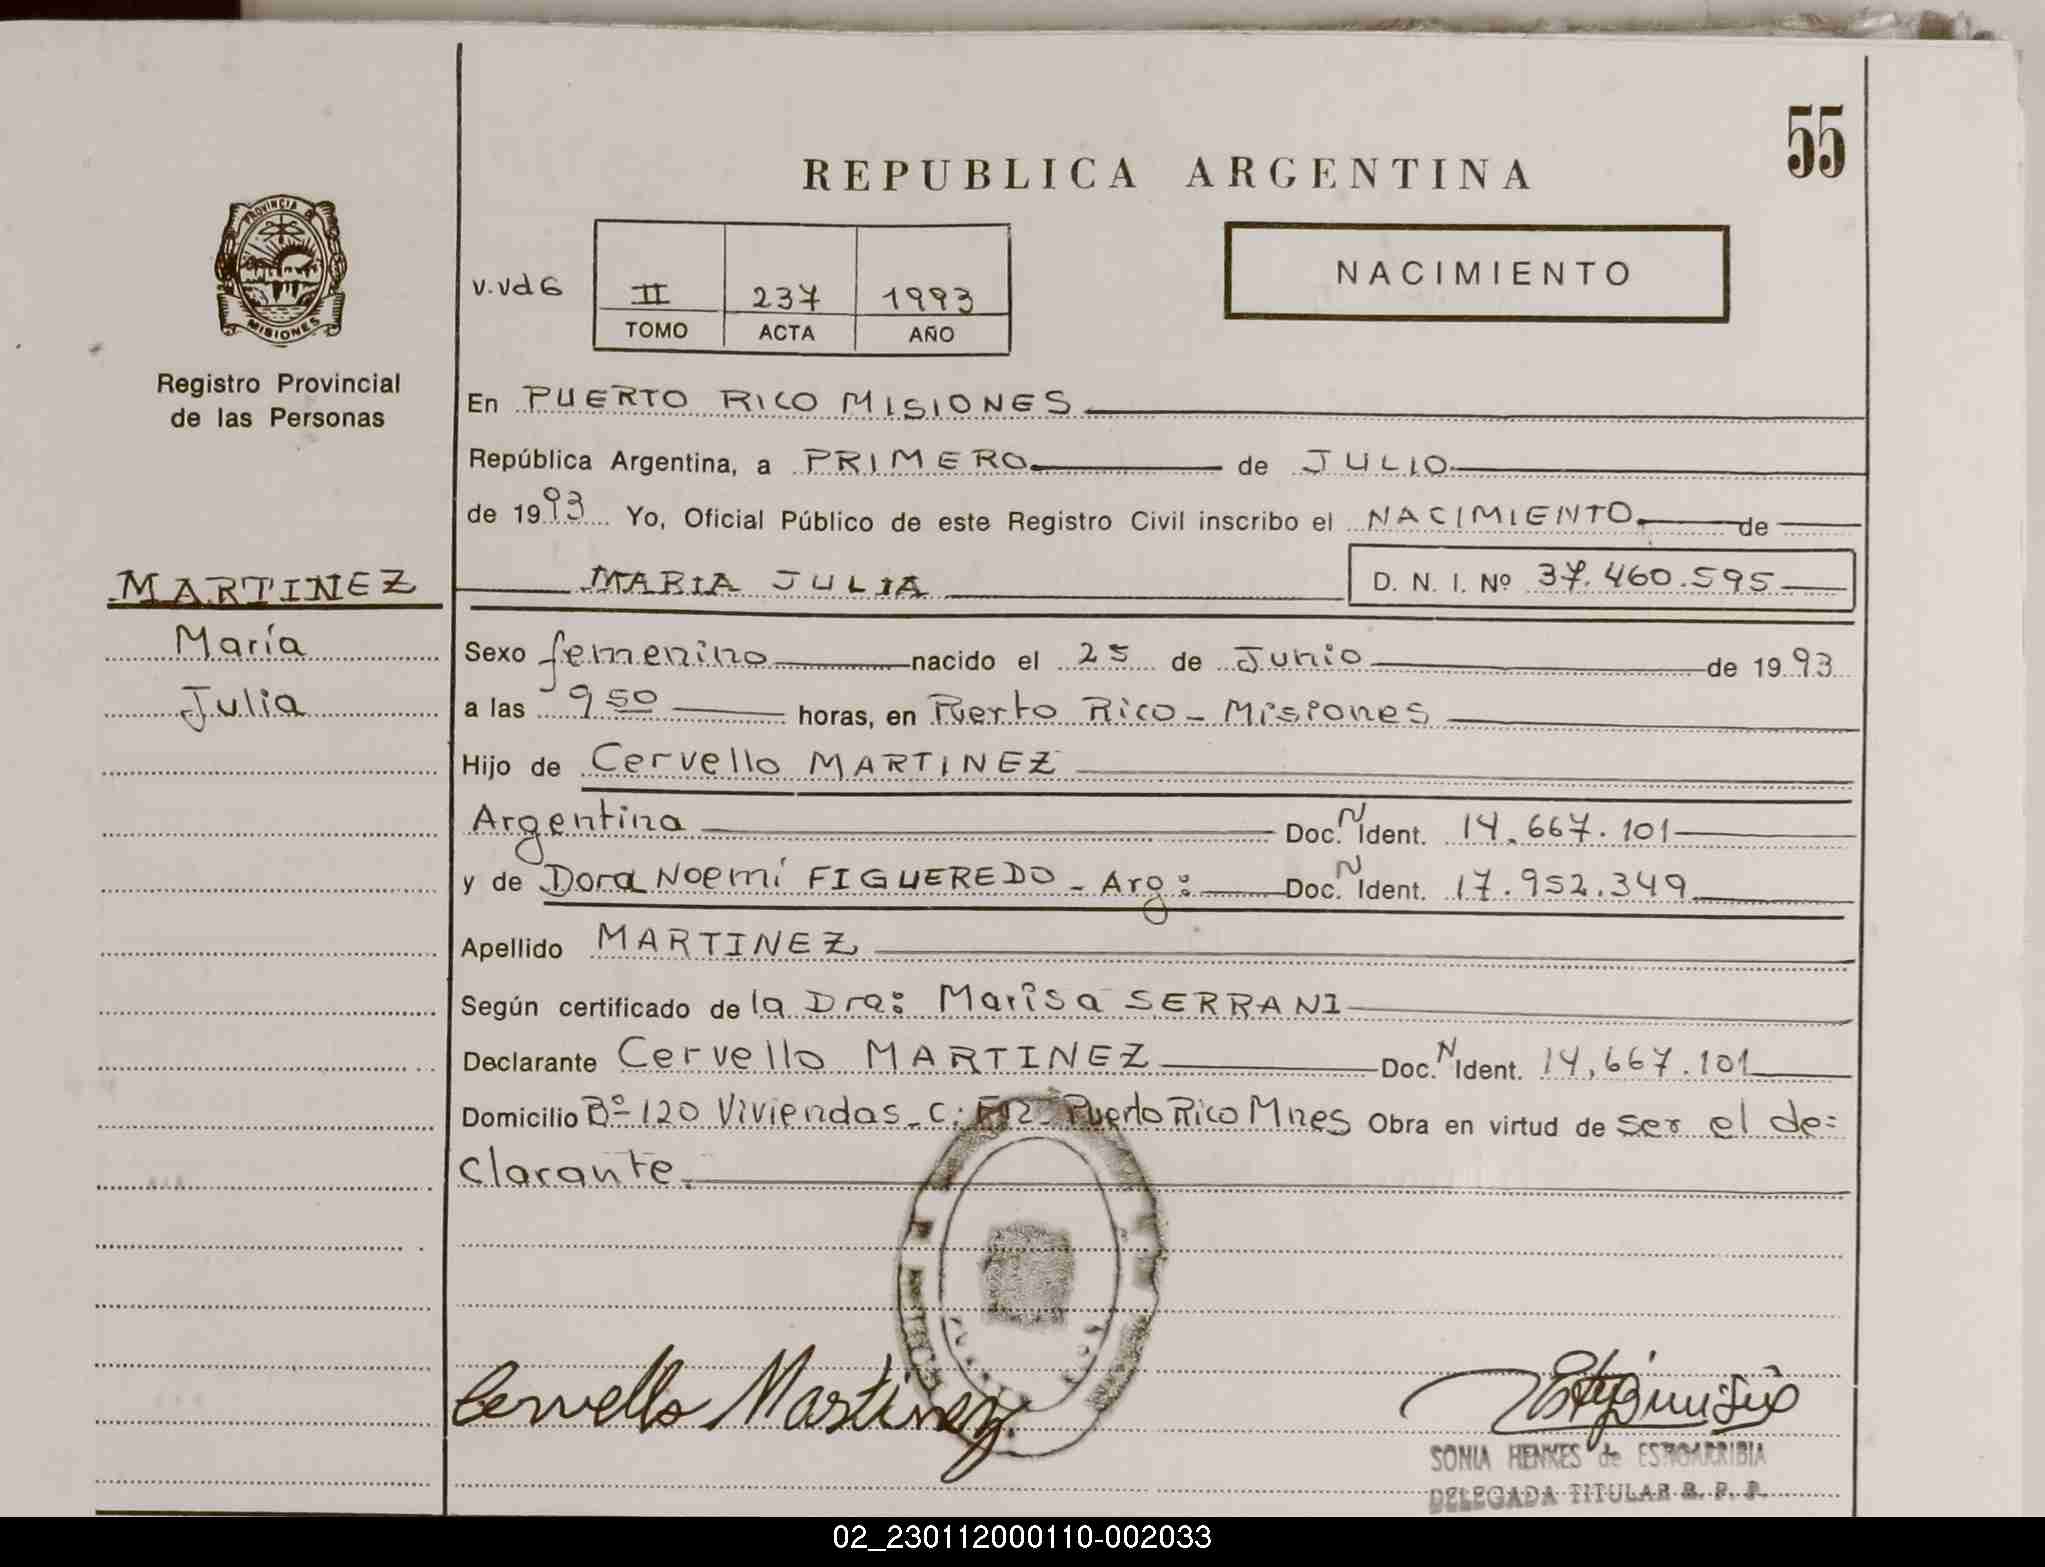 55
REPUBLICA ARGENTINA
PROVINCIA D
MISIONES
Registro Provincial
de las Personas
v.vd6
II 237 1993
TOMO ACTA AÑO
NACIMIENTO
En PUERTO RICO MISIONES
República Argentina, a PRIMERO de JULIO
de 1993 Yo, Oficial Público de este Registro Civil inscribo el NACIMIENTO de
MARIA JULIA D. N. I. Nº 37.460.595
MARTINEZ
María
Julia
Sexo femenino nacido el 25 de Junio de 1993
a las 9 50 horas, en Puerto Rico - Misiones
Hijo de Cervello MARTINEZ
Argentina Doc. N Ident. 14.667.101
y de Dora Noemí FIGUEREDO - Arg: Doc. N Ident. 17.952.349
Apellido MARTINEZ
Según certificado de la Dra: Marisa SERRANI
Declarante Cervello MARTINEZ Doc. N Ident. 14,667.101
Domicilio Bº 120 Viviendas - C: Puerto Rico Mnes Obra en virtud de ser el de=
clarante.
Cervello Martinez
SONIA HENKES de ESTIGARRIBIA
DELEGADA TITULAR R. P. P.
02_230112000110-002033